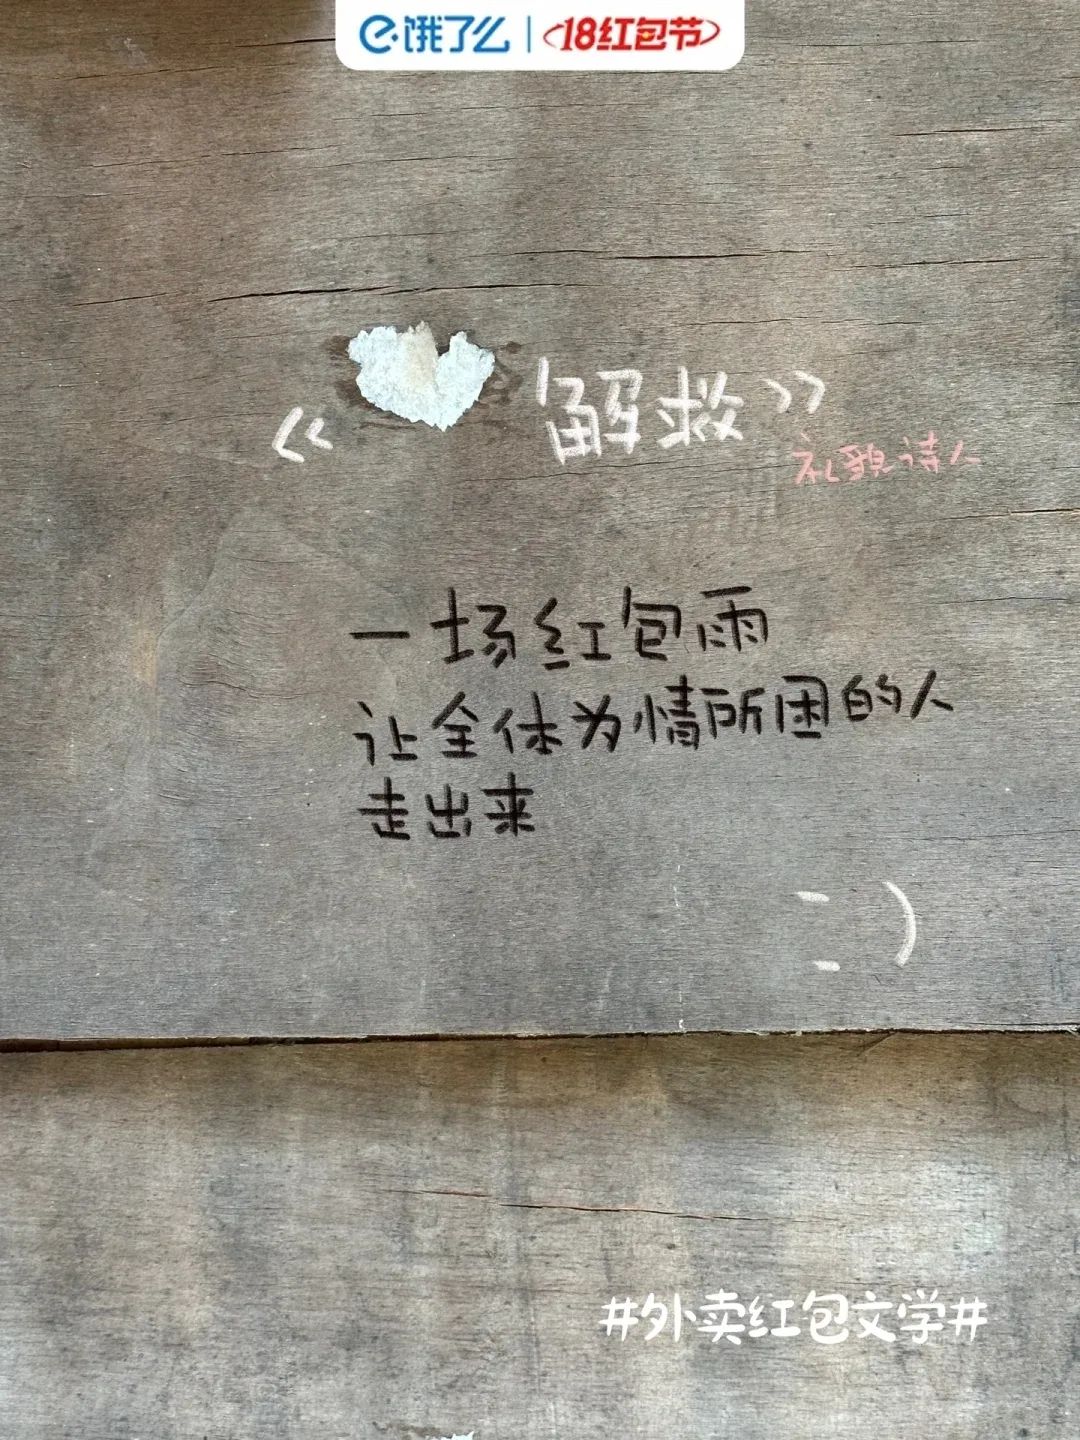 饿了么 | 18红包节
《 解救》
礼貌诗人
一场红包雨
让全体为情所困的人
走出来
:)
#外卖红包文学#